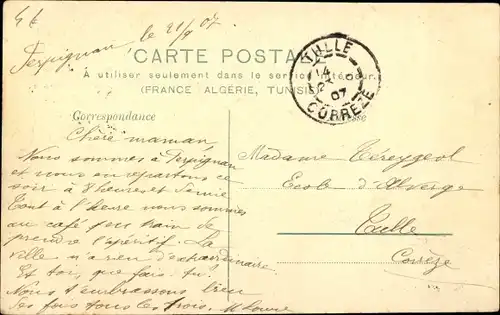 4 k
Perpignan le 21/9 07
CARTE POSTA
A utiliser seulement dans le service intérieur.
(FRANCE ALGÉRIE, TUNISIE)
TULLE
07
CORREZE
Correspondance
Chère maman,
Nous sommes à Perpignan
et nous en repartons ce
soir à 8 heures et demie
Tout à l'heure nous sommes
au café en train de
prendre l'apéritif. La
ville n'a rien d'extraordinaire.
Et toi, que fais-tu.
Nous t'embrassons bien
des fois tous les trois.
Madame Téreygeol
Ecole d'Alverge
Tulle
Corrèze